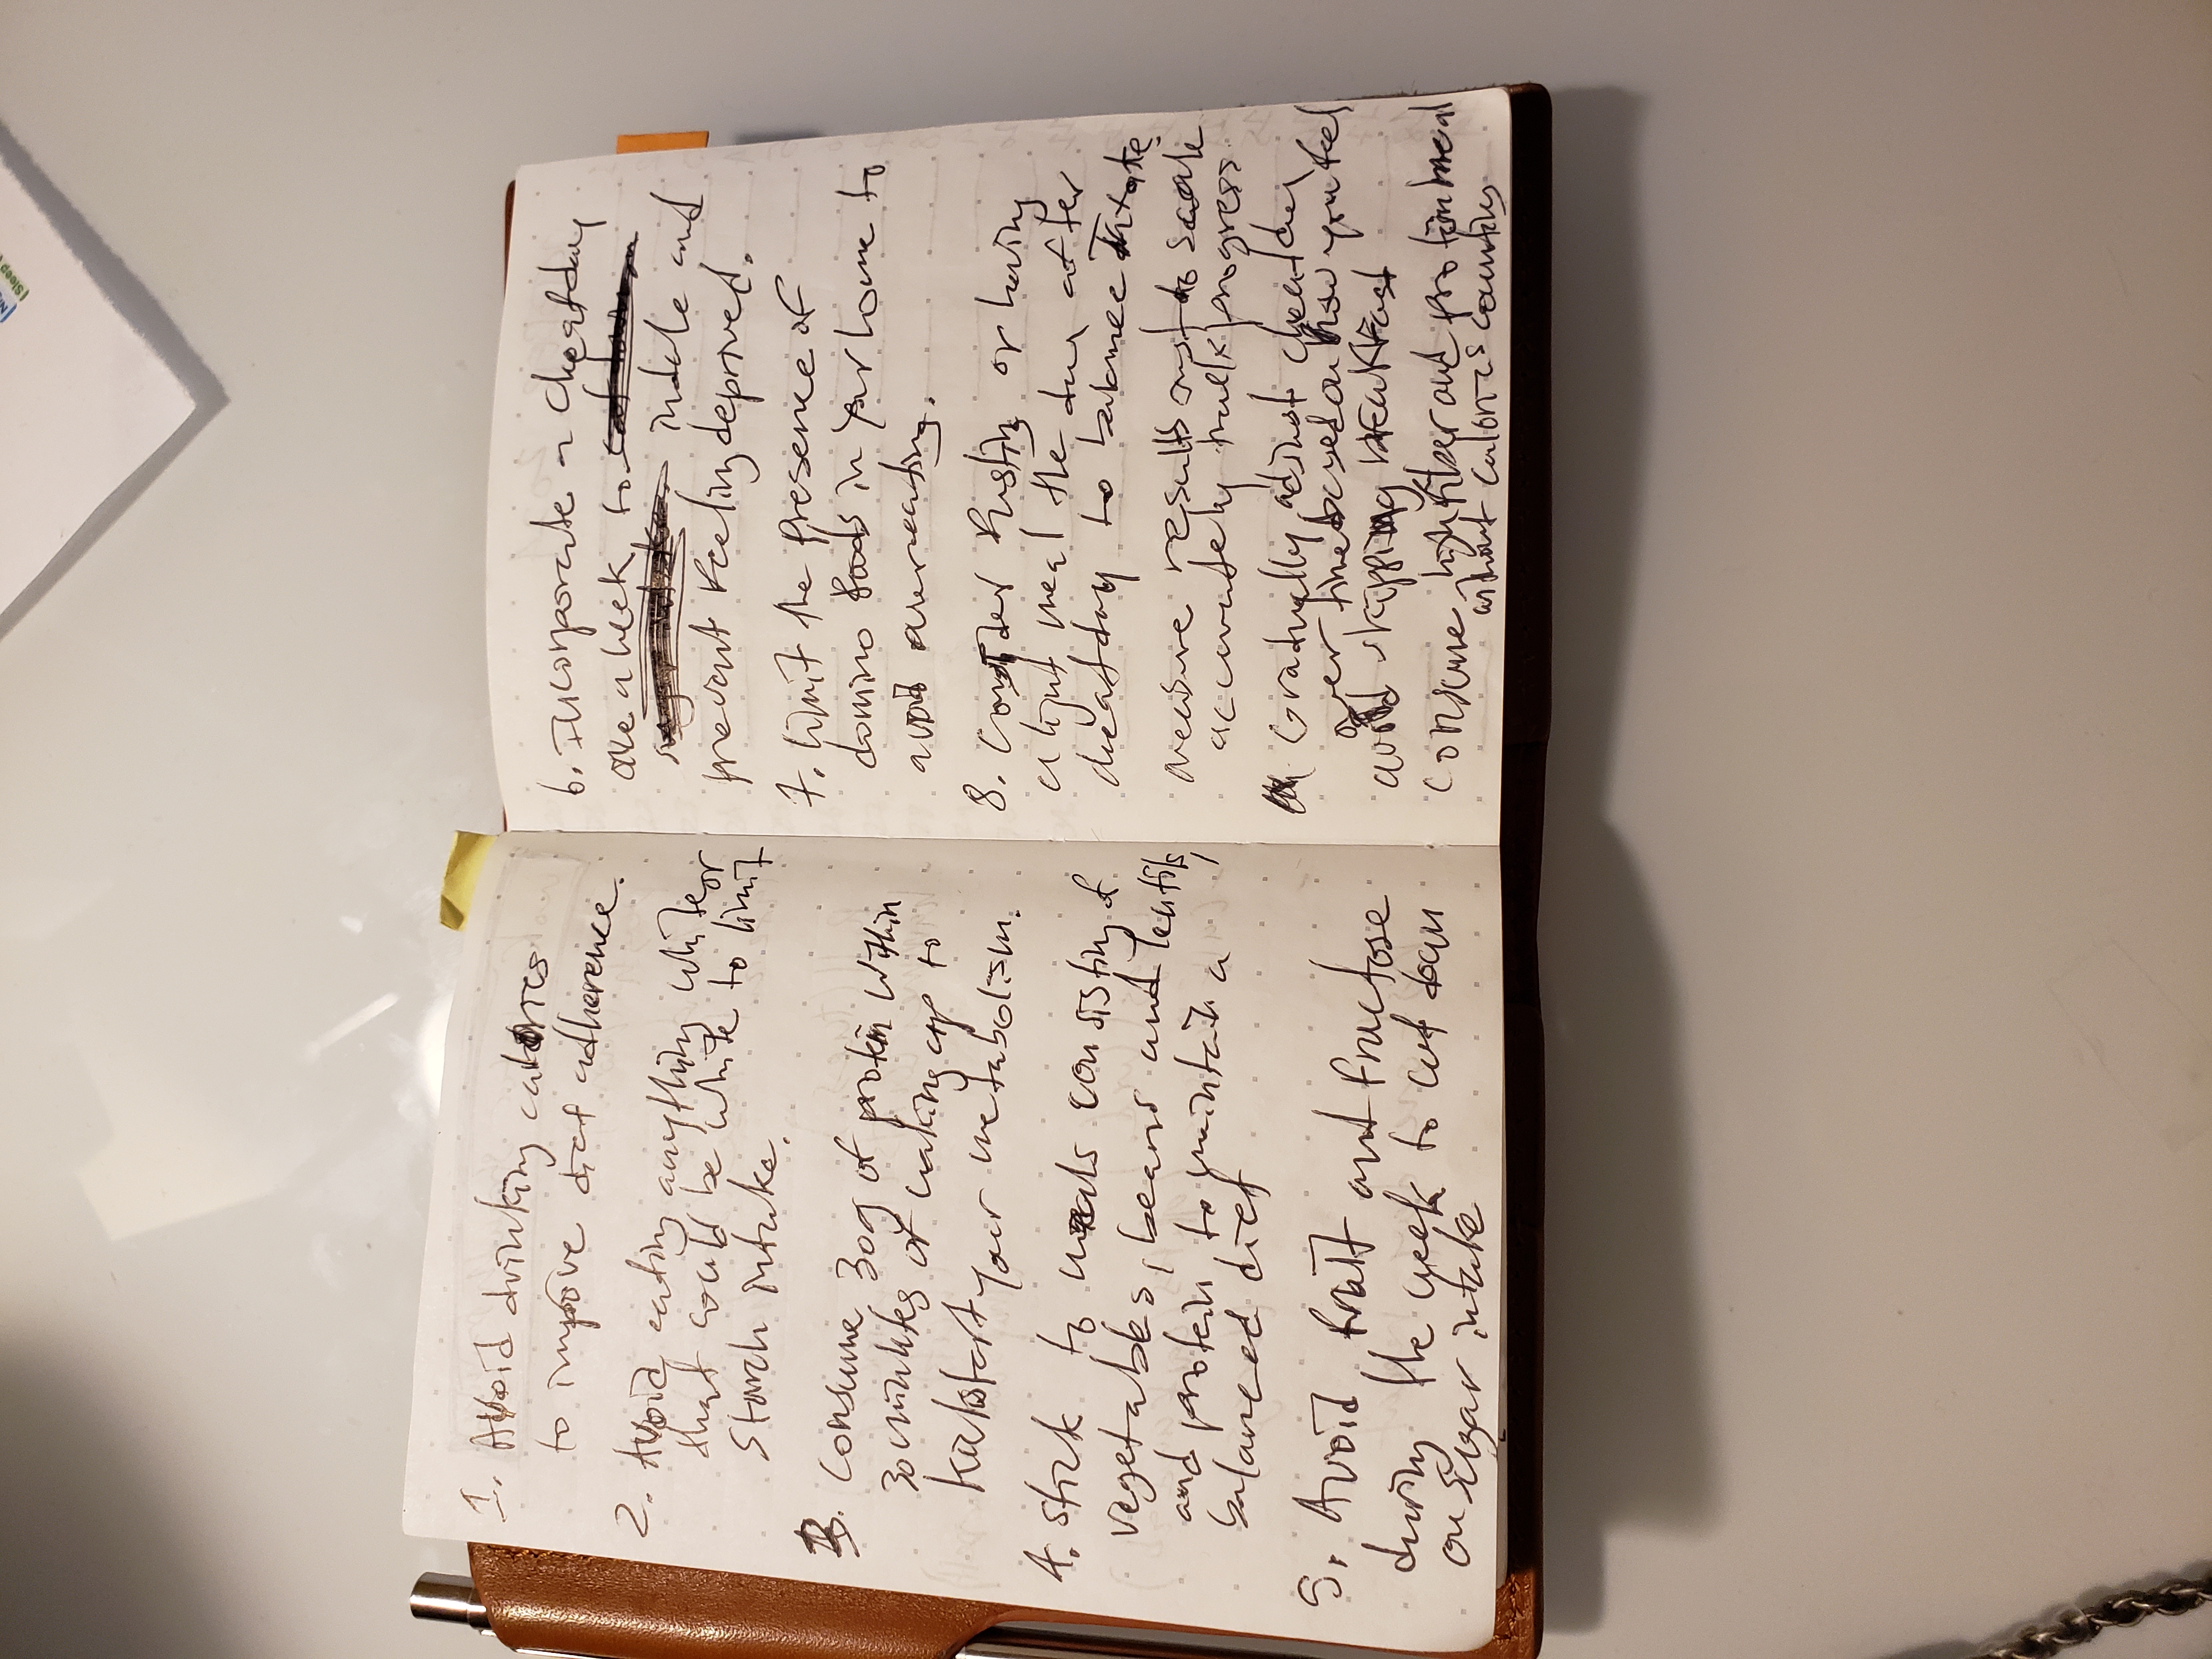 Sleep
1. Avoid drinking calories
to improve diet adherence.
2. Avoid eating anything white or
that could be white to limit
starch intake.
3. Consume 30g of protein within
30 minutes of waking up to
kickstart your metabolism.
4. stick to meals consisting of
vegetables, beans and lentils,
and protein to maintain a
balanced diet
5. Avoid fruit and fructose
during the week to cut down
on sugar intake
6. Incorporate a cheatday
one a week to cut down on
sugar intake. indule and
prevent feeling deprived.
7. limit the presence of
domino foods in your home to
avoid overeating.
8. Consider fasting or having
a light meal the day after
cheatday to balance Intake.
measure results scale
accurately track progress
Gradually adjust cheatday
over time based on how you feel
avoid skipping breakfast
Consume high fiber and protein meal
without calories counting